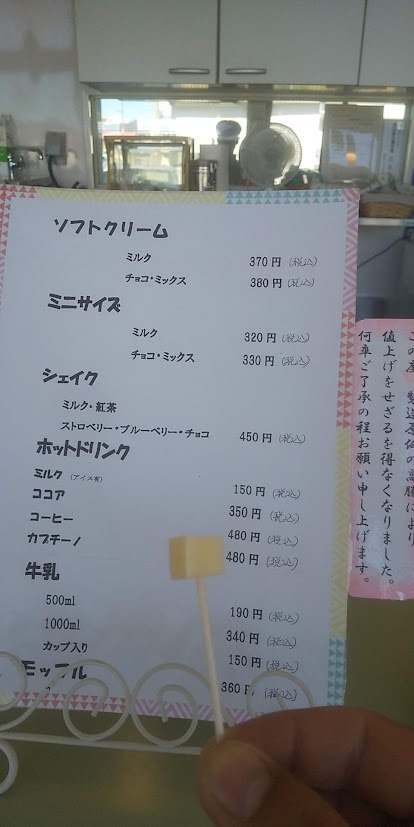 ソフトクリーム
ミルク 370円(税込)
チョコ・ミックス 380円(税込)
ミニサイズ
ミルク 320円(税込)
チョコ・ミックス 330円(税込)
シェイク
ミルク・紅茶
ストロベリー・ブルーベリー・チョコ 450円(税込)
ホットドリンク
ミルク (アイス有) 150円(税込)
ココア 350円(税込)
コーヒー 480円(税込)
カプチーノ 480円(税込)
牛乳
500ml 190円(税込)
1000ml 340円(税込)
カップ入り 150円(税込)
モッフル
360円(税込)
この度、製造原価の高騰により
値上げをせざるを得なくなりました。
何卒ご了承の程お願い申し上げます。